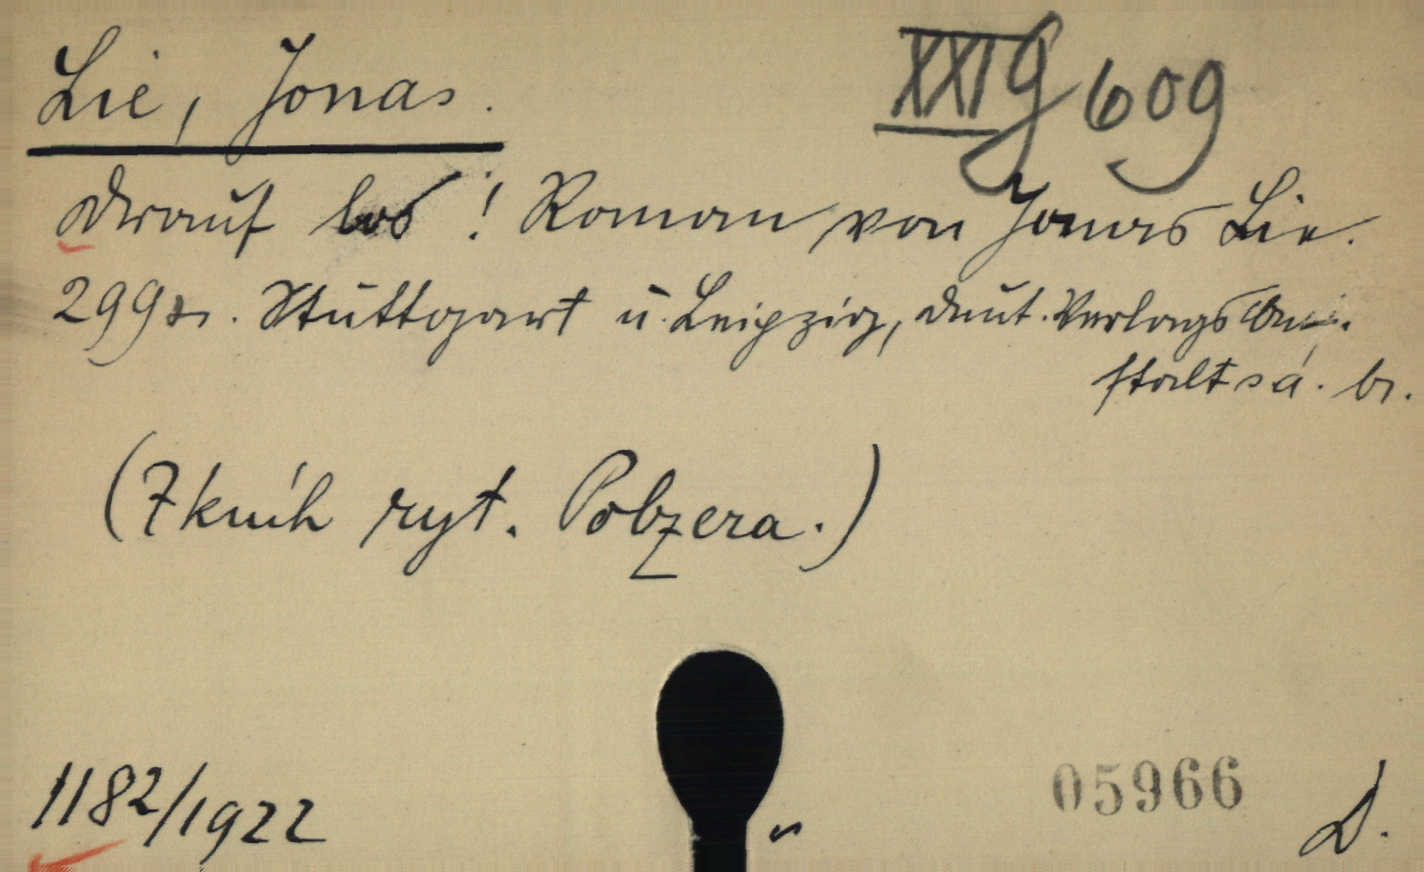 Lie, Jonas.
XXI G 609
Drauf los! Roman von Jonas Lie.
299 s. Stuttgart u. Leipzig, Deut. Verlags An-
stalt s a. br.
(Z knih ryt. Polzera.)
1182/1922
05966
D.